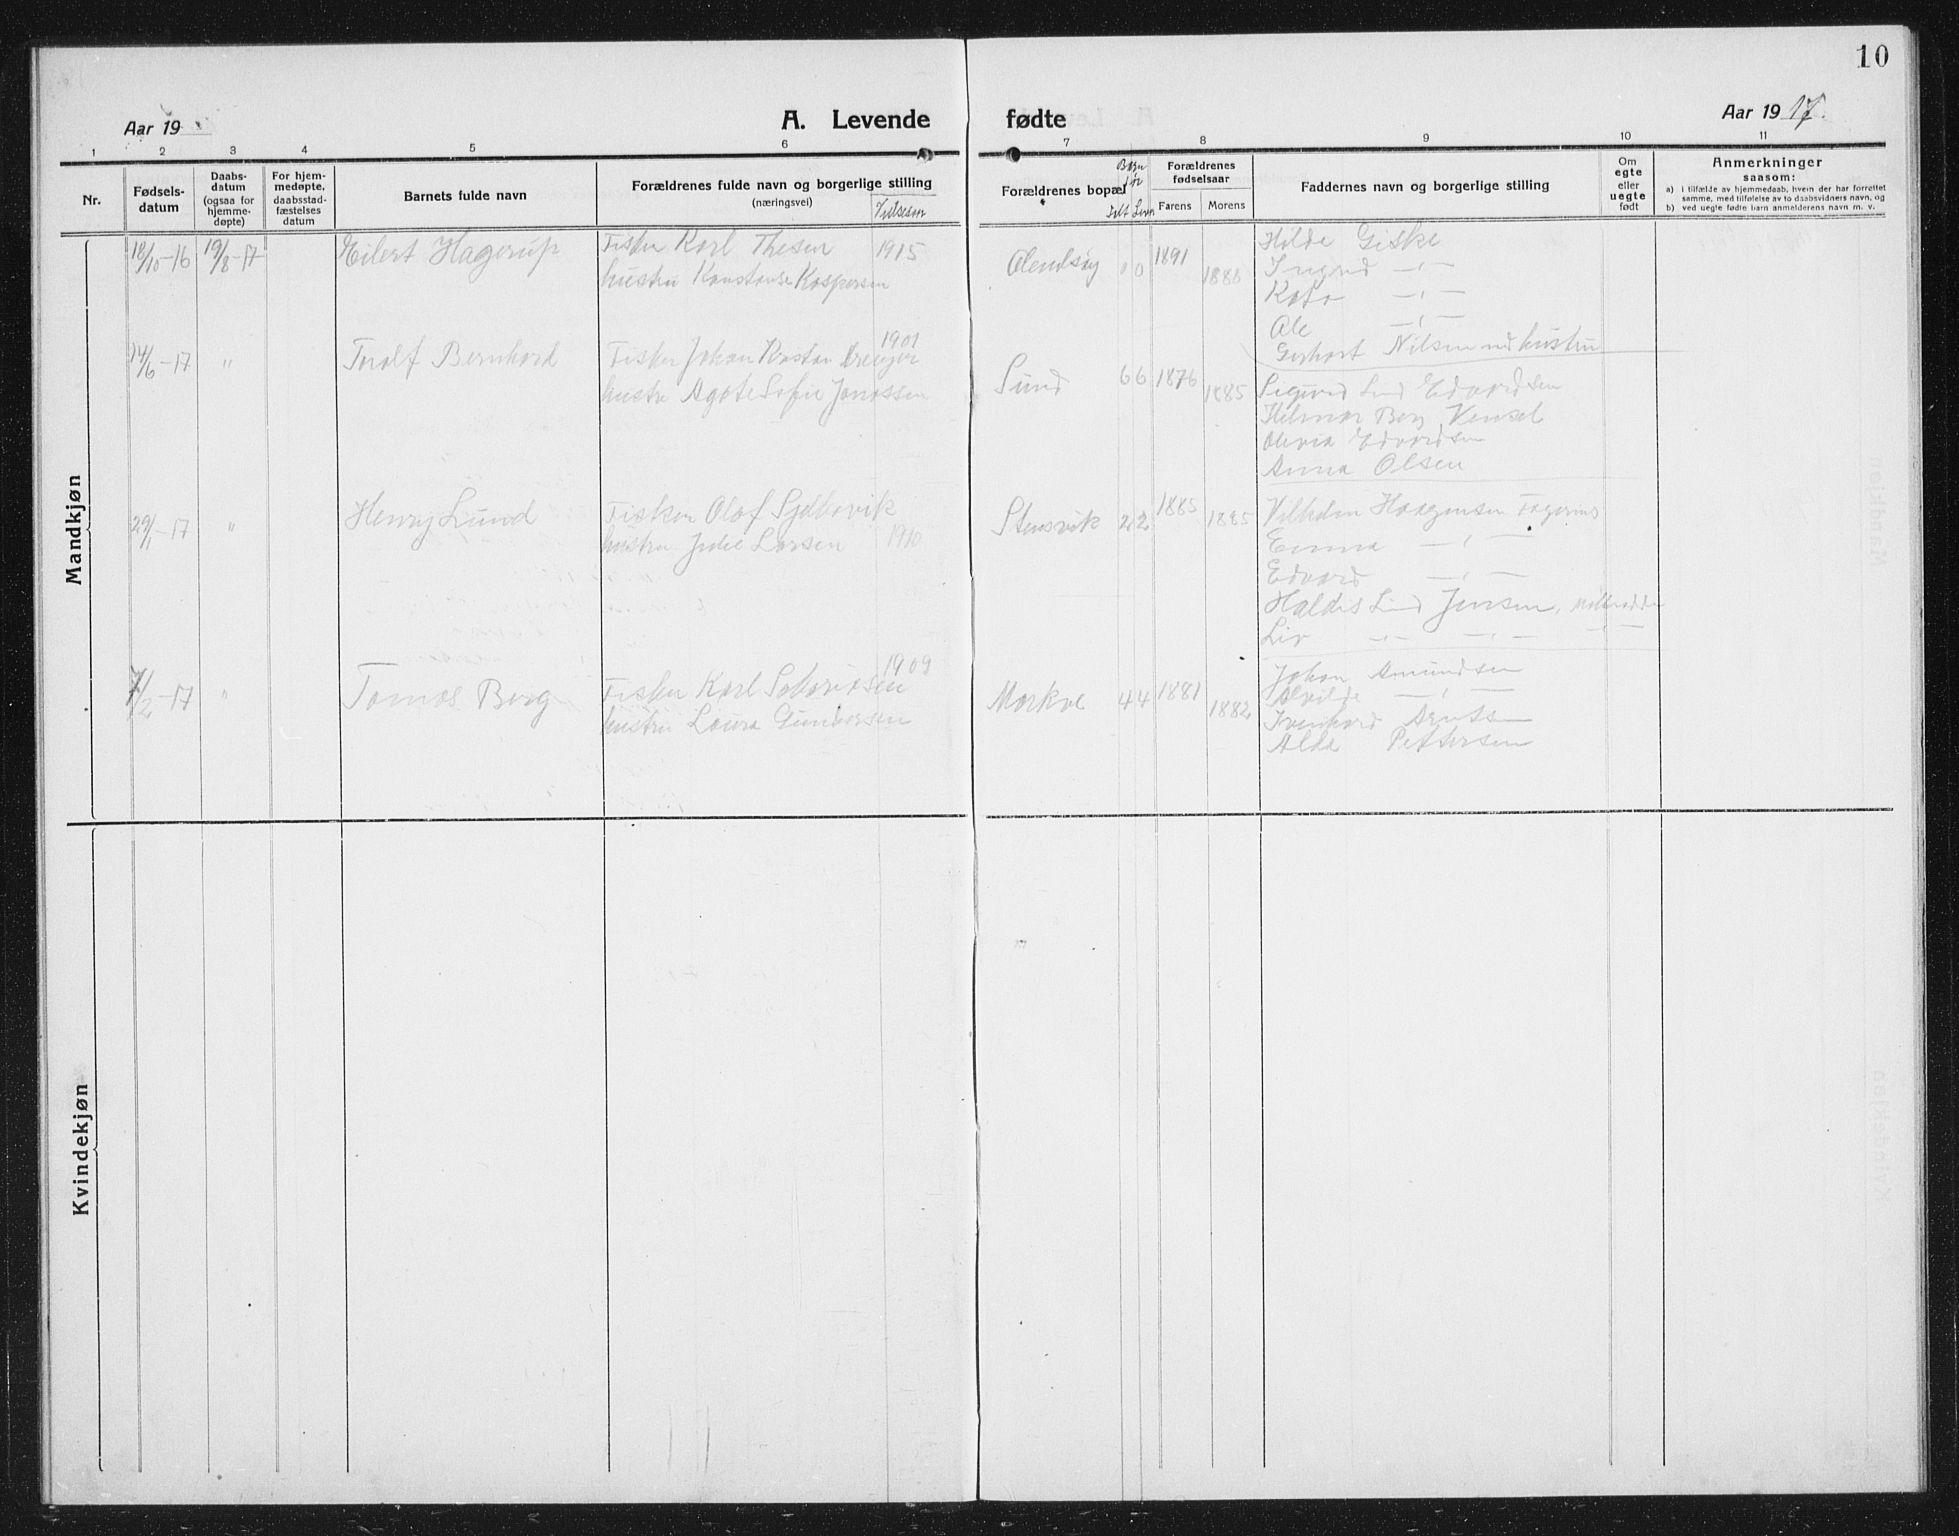 10
Aar 19
A. Levende
fødte
Aar 1917.
1 2 3 4 5 6 7 8 9 10 11
Nr.
Fødsels-
datum
Daabs-
datum
(ogsaa for
hjemme-
døpte)
For hjem-
medøpte,
daabsstad-
fæstelses
datum
Barnets fulde navn
Forældrenes fulde navn og borgerlige stilling
(næringsvei)
Vielsesaar
Forældrenes bopæl
Børn
før
Forældrenes
fødselsaar
Farens Morens
Faddernes navn og borgerlige stilling
Om
egte
eller
uegte
født
Anmerkninger
saasom:
a) i tilfælde av hjemmedaab, hvem der har forrettet
samme, med tilføielse av to daabsvidners navn, og
b) ved uegte fødte barn anmelderens navn m. v.
Mandkjøn
18/10-16 19/8-17 Eilert Hagerup Fisker Karl Thesen 1915
hustru Konstanse Kaspersen
0 0 1891 1888
Hilde Giske
Ingrid — " —
— " —
Ole — " —
Gerhart Nilsen med hustru
14/6-17 " Toralf Bernhard Fisker Johan 1901
hustru Agate Sofie Jonassen
Sund 6 6 1876 1885
Sigurd Lind Edvardsen
Hilmar Berg Vensel
Olevia Edvardsen
Anna Olsen
29/1-17 " Henry Lund Fisker Olaf
hustru Julie Larsen 1910
Stensvik 2 2 1885 1885
Vilhelm Haagensen
Emma — " —
Edvard — " —
Haldis Lind Jensen,
Liv — " — — " —
7/2-17 " Tomas Berg Fisker Karl 1909
hustru Laura
4 4 1881 1882
Johan Amundsen
Alvilde — " —
Arntsen
Alda Pettersen
Kvindekjøn